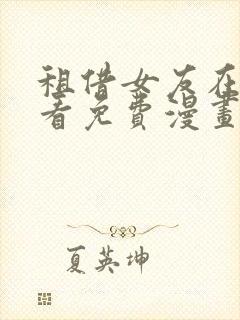 租借女友在
看免費漫畫
夏英坤